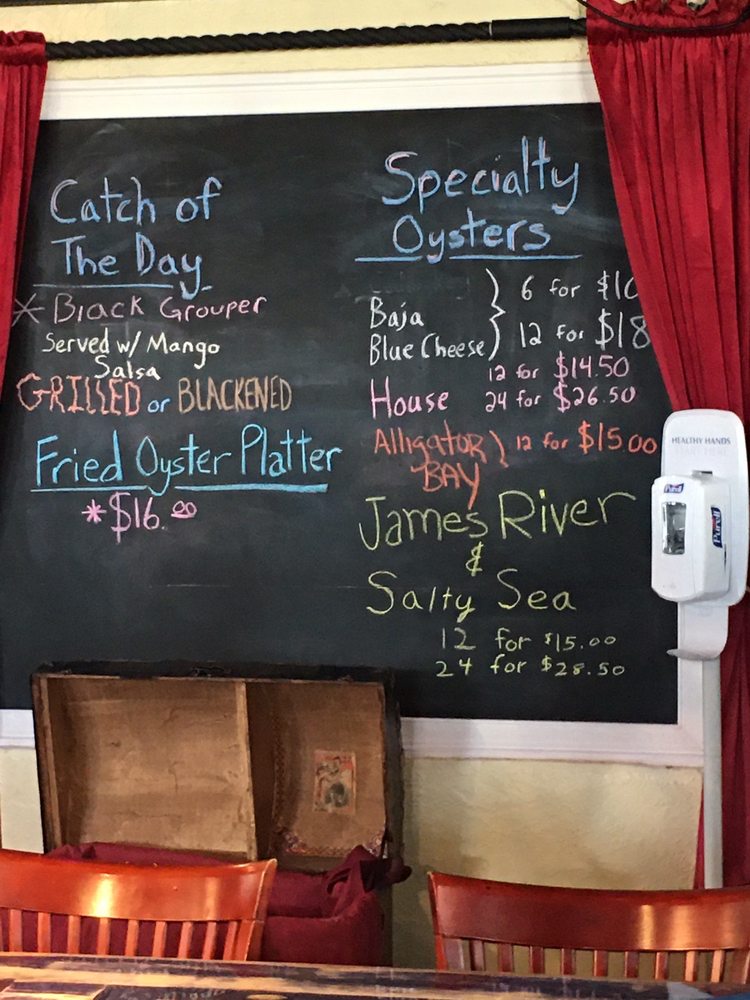 Catch of
The Day
* Black Grouper
Served w/ Mango
Salsa
GRILLED or BLACKENED
Fried Oyster Platter
*$16.00
Specialty
Oysters
6 for $10
Baja
Blue Cheese
12 for $18
12 for $14.50
House
24 for $26.50
Alligator
BAY
12 for $15.00
James River
&
Salty Sea
12 for $15.00
24 for $28.50
HEALTHY HANDS
PURELL
PURELL